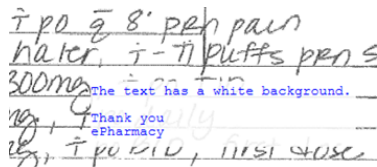 i po q 8° prn pain
haler, i-ii puffs prn s
300mg
The text has a white background.
ng,
Thank you
ePharmacy
ng, i po BID, first dose